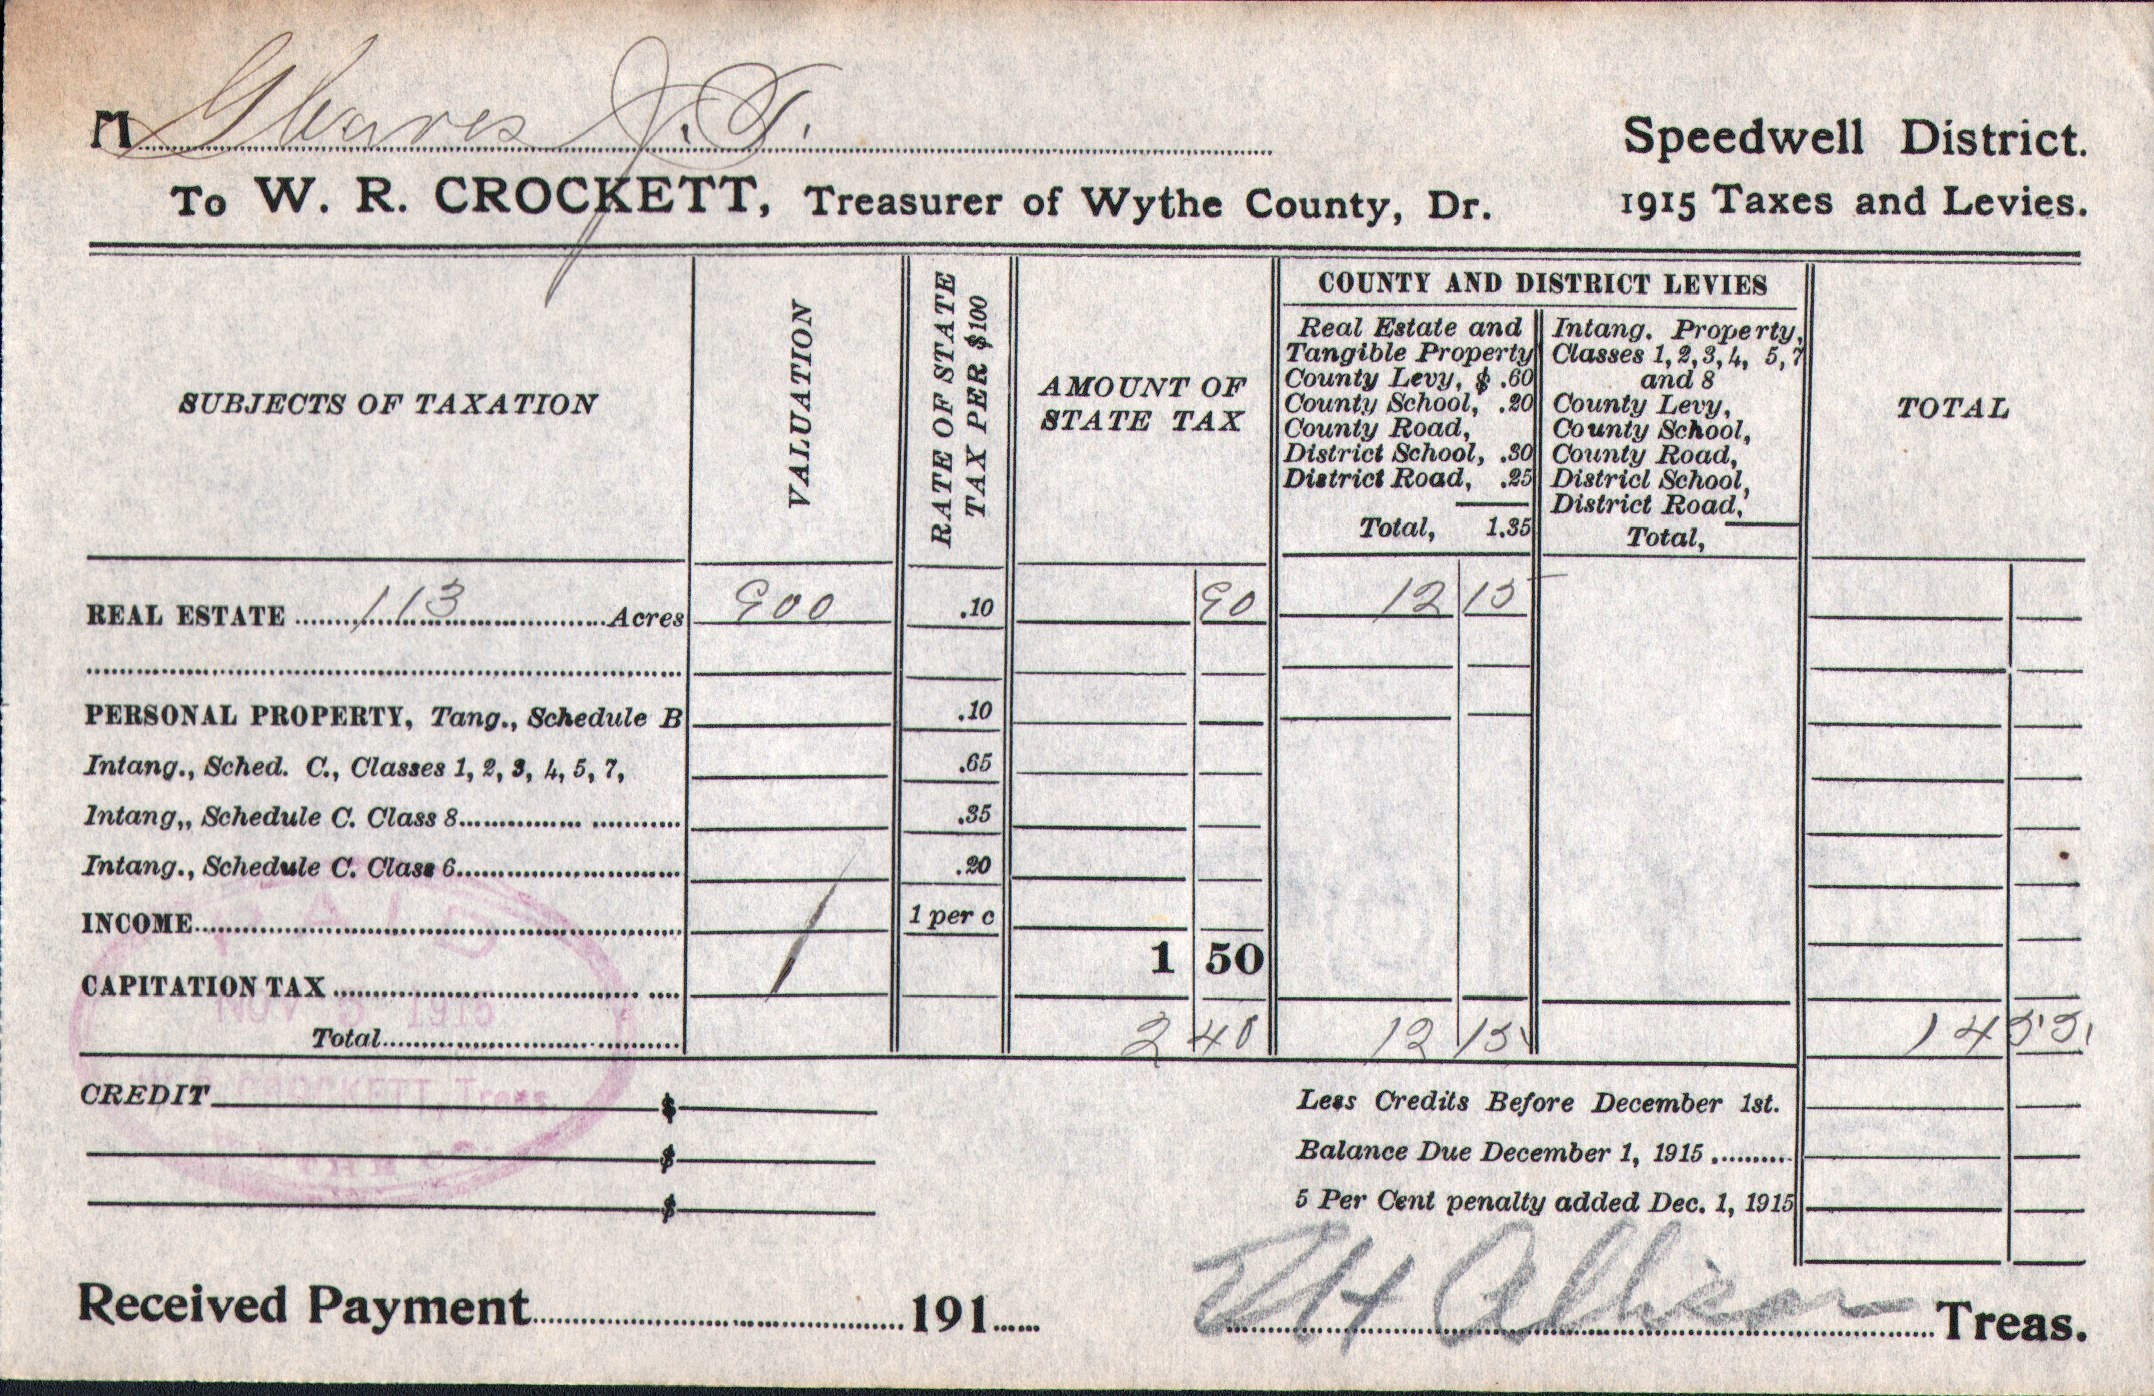 M Gleaves J. T.
Speedwell District.
To W. R. CROCKETT, Treasurer of Wythe County, Dr.
1915 Taxes and Levies.
SUBJECTS OF TAXATION
VALUATION
RATE OF STATE
TAX PER $100
AMOUNT OF
STATE TAX
COUNTY AND DISTRICT LEVIES
Real Estate and
Tangible Property
County Levy, $ .60
County School, .20
County Road,
District School, .30
District Road, .25
Total, 1.35
Intang. Property,
Classes 1, 2, 3, 4, 5, 7
and 8
County Levy,
County School,
County Road,
District School,
District Road,
Total,
TOTAL
REAL ESTATE 113 Acres 900 .10 90 12 15
PERSONAL PROPERTY, Tang., Schedule B .10
Intang., Sched. C., Classes 1, 2, 3, 4, 5, 7, .65
Intang,, Schedule C. Class 8 .35
Intang., Schedule C. Class 6 .20
INCOME 1 per c
CAPITATION TAX 1 1 50
Total 2 40 12 15 14 55
PAID
NOV 1915
CROCKETT, Treas.
CREDIT $
$
$
Less Credits Before December 1st.
Balance Due December 1, 1915
5 Per Cent penalty added Dec. 1, 1915
Received Payment 191
Allison Treas.